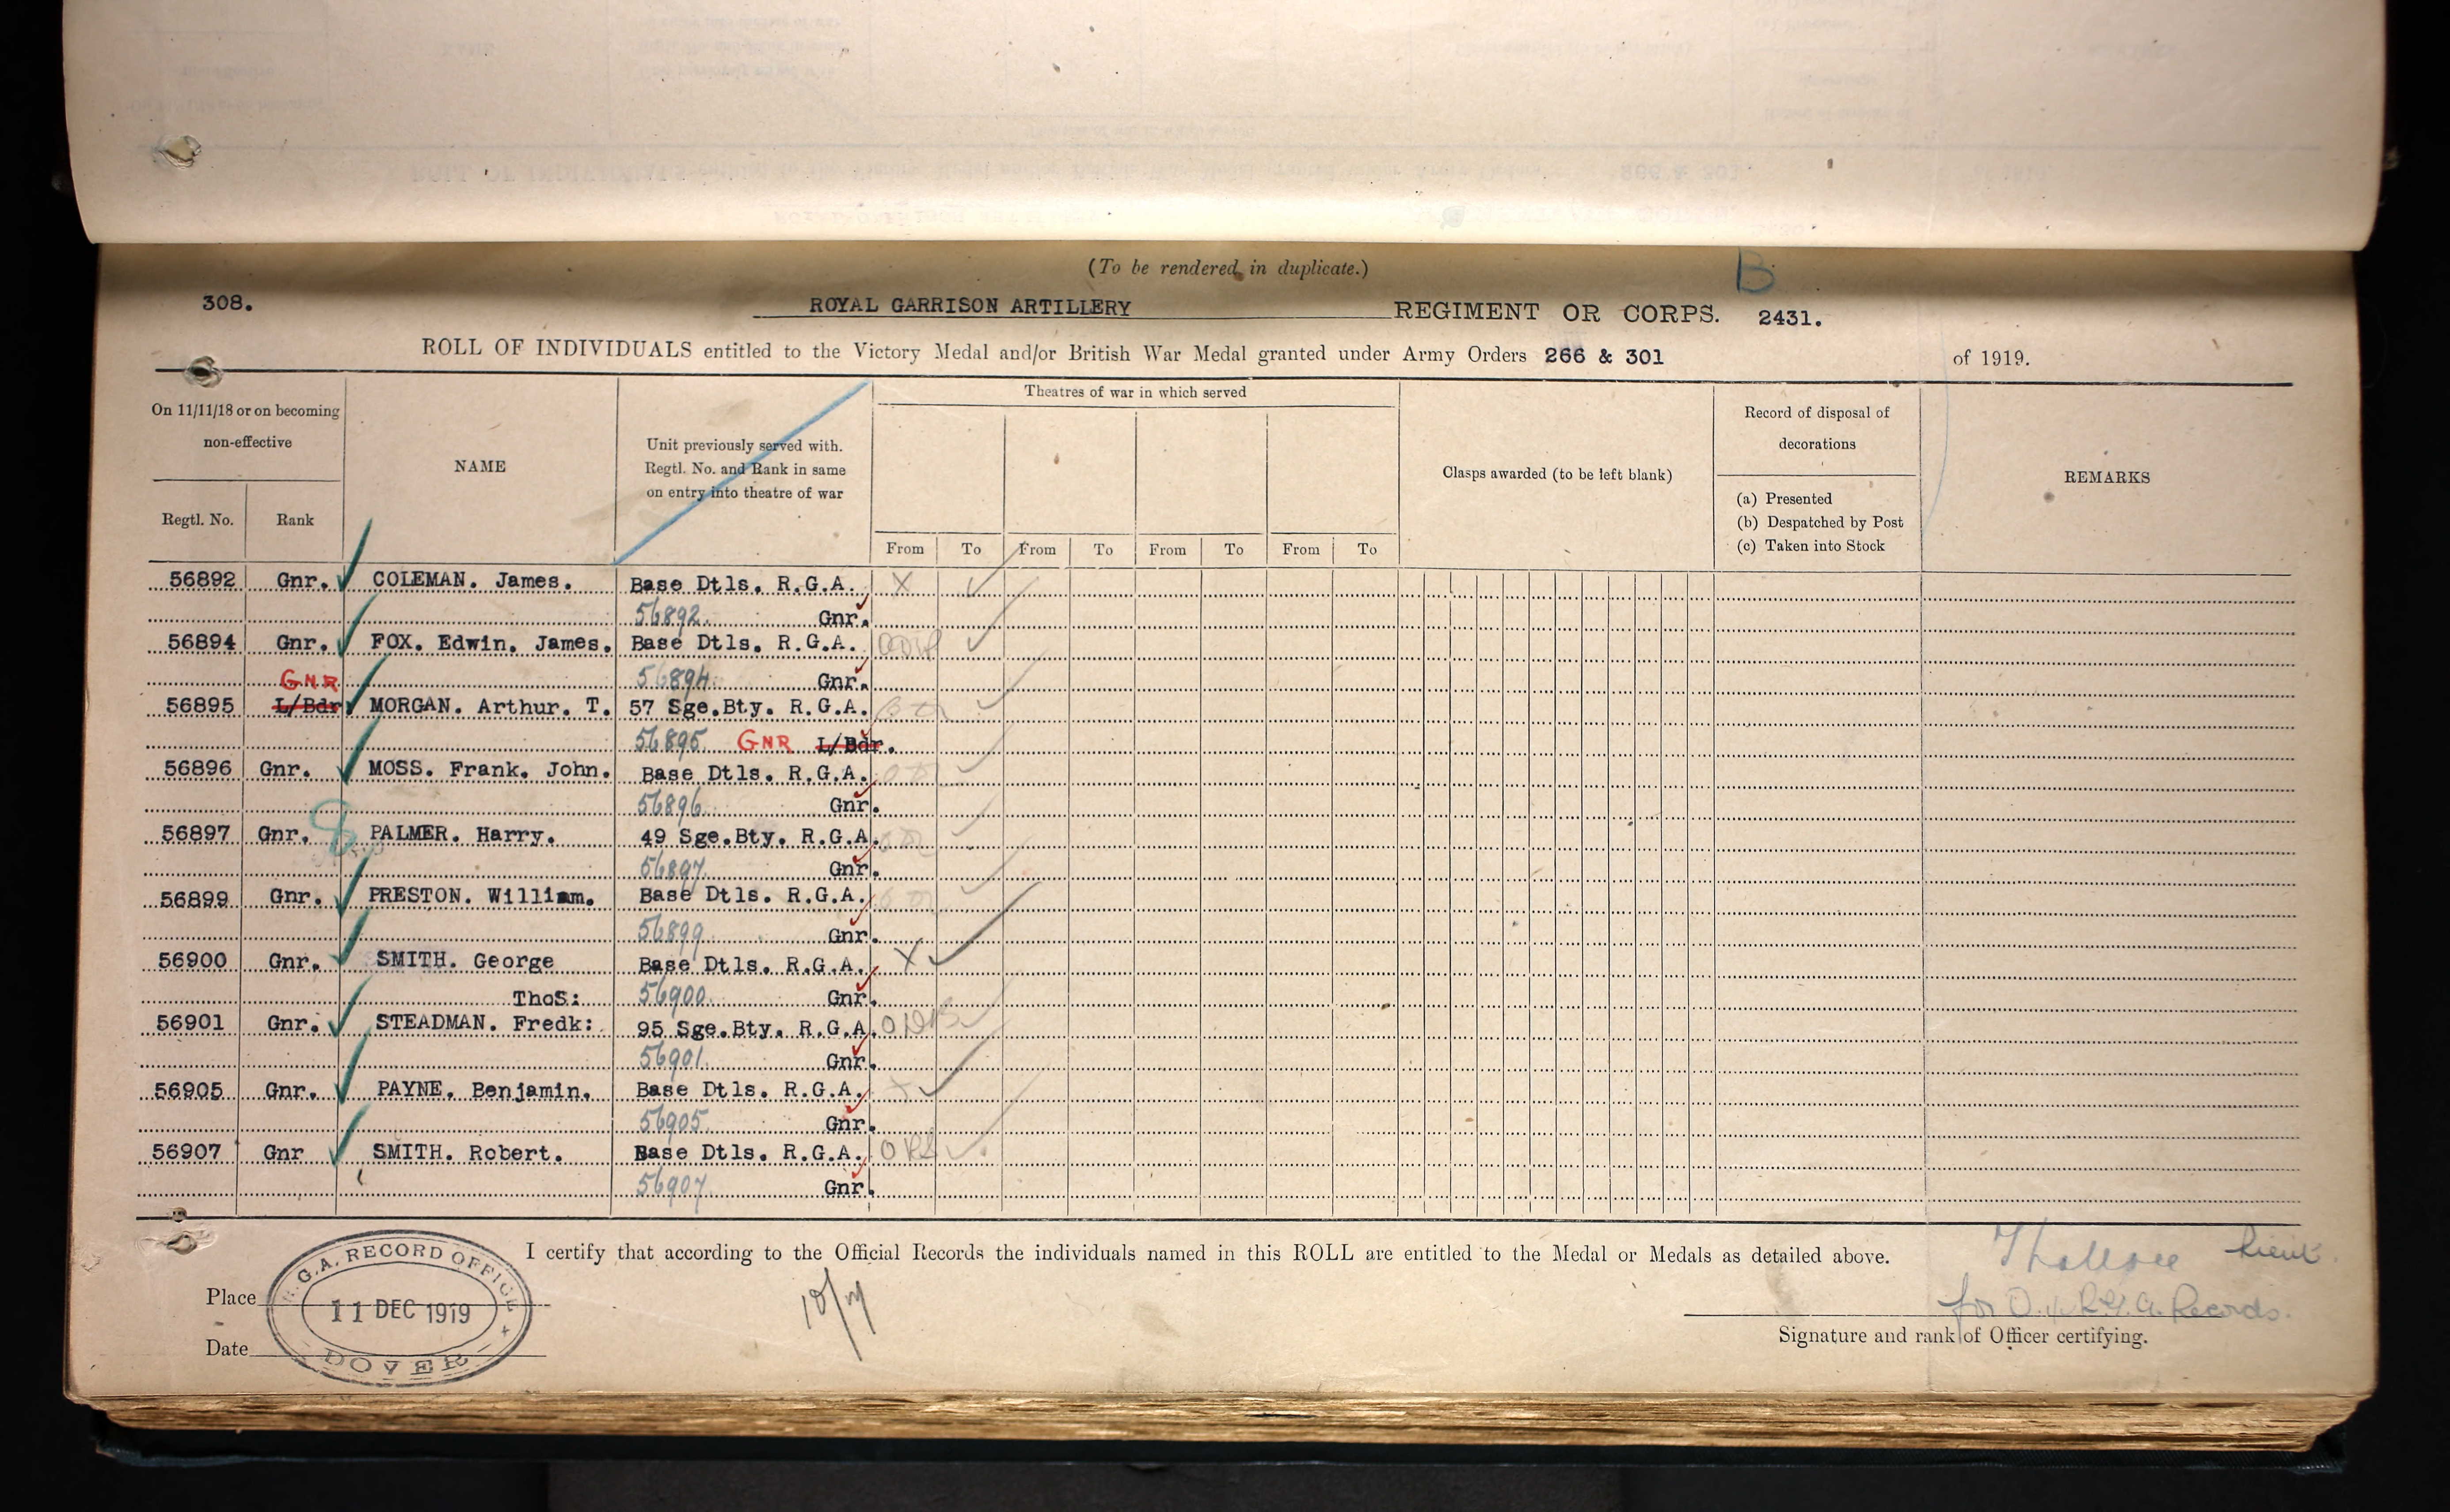 (To be rendered in duplicate.)
B
308. ROYAL GARRISON ARTILLERY REGIMENT OR CORPS. 2431.
ROLL OF INDIVIDUALS entitled to the Victory Medal and/or British War Medal granted under Army Orders 266 & 301 of 1919.
On 11/11/18 or on becoming
non-effective
Regtl. No. Rank
NAME
Unit previously served with.
Regtl. No. and Rank in same
on entry into theatre of war
Theatres of war in which served
From To From To From To From To
Clasps awarded (to be left blank)
Record of disposal of
decorations
(a) Presented
(b) Despatched by Post
(c) Taken into Stock
REMARKS
56892 Gnr. COLEMAN. James. Base Dtls. R.G.A. X
56892 Gnr.
56894 Gnr. FOX. Edwin. James. Base Dtls. R.G.A.
GNR 56894 Gnr.
56895 L/Bdr MORGAN. Arthur. T. 57 Sge.Bty. R.G.A.
56895 GNR L/Bdr.
56896 Gnr. MOSS. Frank. John. Base Dtls. R.G.A.
56896 Gnr.
56897 Gnr. PALMER. Harry. 49 Sge.Bty. R.G.A.
56897 Gnr.
56899 Gnr. PRESTON. William. Base Dtls. R.G.A.
56899 Gnr.
56900 Gnr. SMITH. George Base Dtls. R.G.A. X
ThoS: 56900 Gnr.
56901 Gnr. STEADMAN. Fredk: 95 Sge.Bty. R.G.A.
56901 Gnr.
56905 Gnr. PAYNE. Benjamin. Base Dtls. R.G.A.
56905 Gnr.
56907 Gnr SMITH. Robert. Base Dtls. R.G.A.
56907 Gnr.
I certify that according to the Official Records the individuals named in this ROLL are entitled to the Medal or Medals as detailed above.
Lieut.
for O. i/c R.G.A. Records.
Signature and rank of Officer certifying.
Place
Date
R.G.A. RECORD OFFICE
11 DEC 1919
DOVER